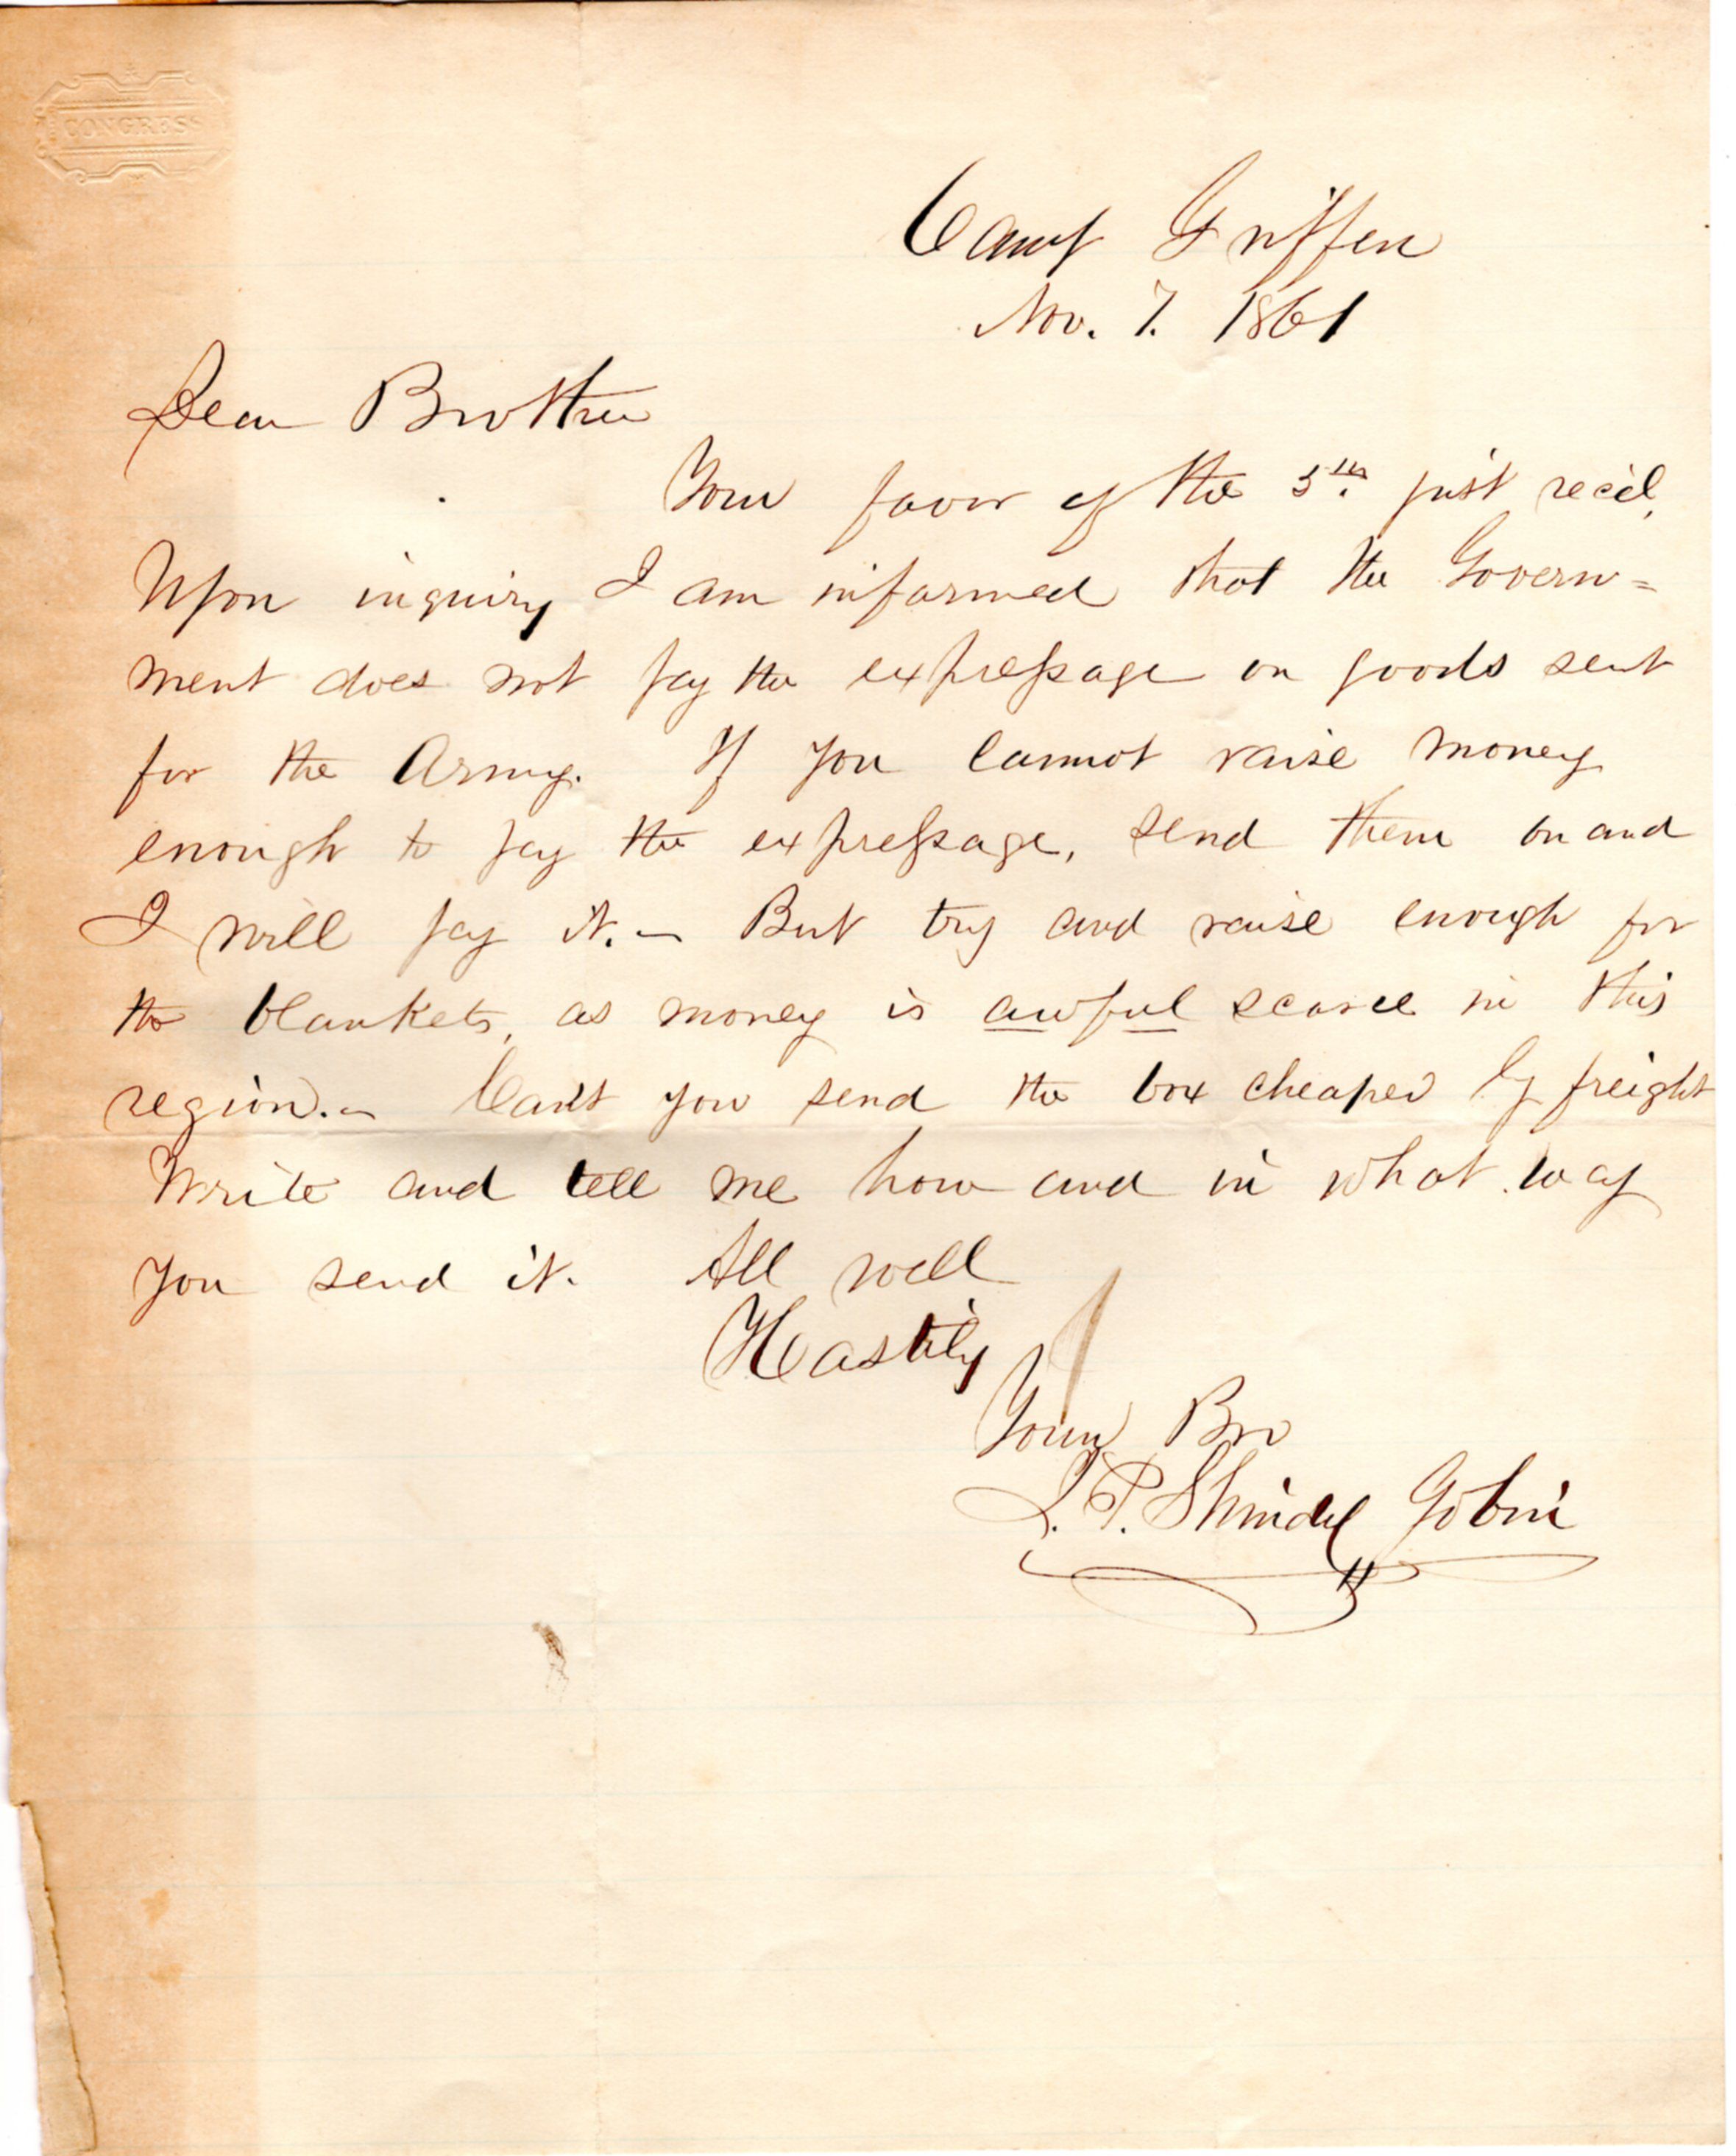 CONGRESS
Camp Griffen
Nov. 7. 1861
Dear Brother
Your favor of the 5th. just rec'd,
Upon inquiry I am informed that the Govern=
ment does not pay the expressage on goods sent
for the Army. If you cannot raise money
enough to pay the expressage, send them on and
I will pay it. – But try and raise enough for
the blankets, as money is awful scarce in this
region. – Can't you send the box cheaper by freight
Write and tell me how and in what way
you send it. All well
Hastily
Your Bro
J. P. Shindel Gobin